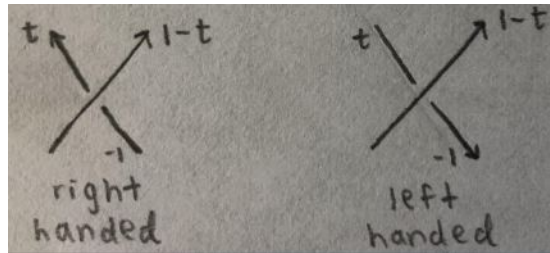 t 1-t
-1
right
handed
t 1-t
-1
left
handed